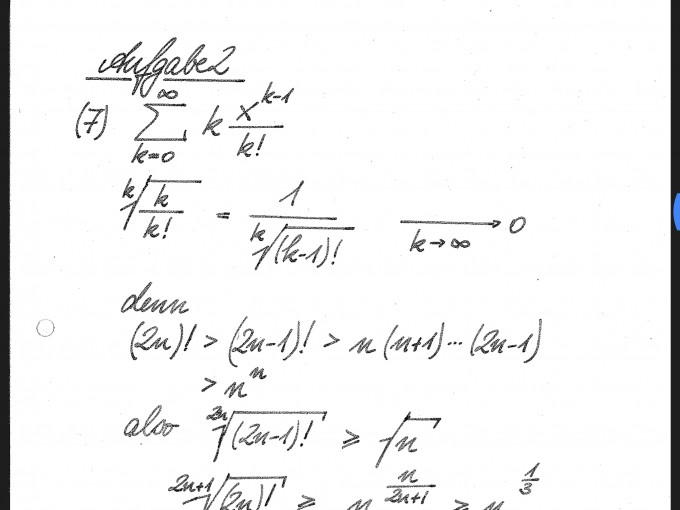 Aufgabe 2
(7) ∑_{k=0}^{∞} k x^{k-1}/k!
ᵏ√(k/k!) = 1/ᵏ√((k-1)!) →_{k→∞} 0
denn
(2n)! > (2n-1)! > n(n+1)···(2n-1)
> n^n
also ²ⁿ√((2n-1)!) ≥ √n
²ⁿ⁺¹√((2n)!) ≥ n^{n/(2n+1)} ≥ n^{1/3}